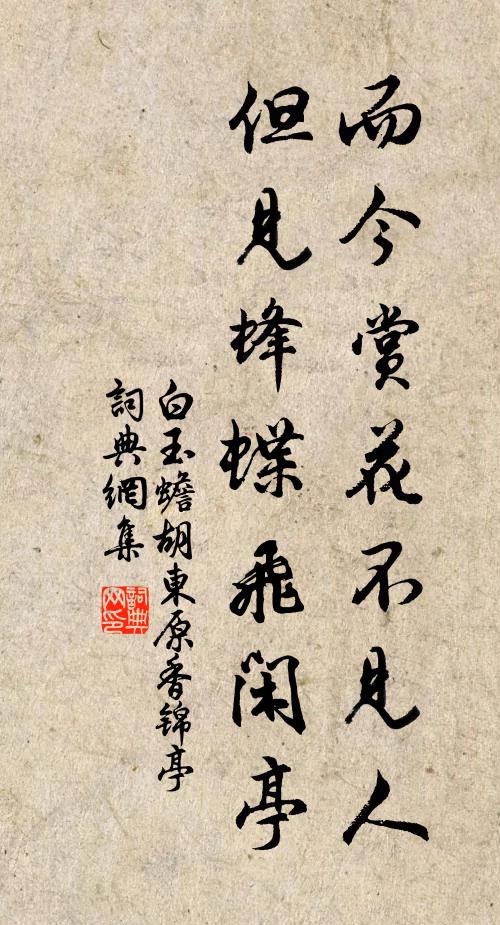 而今賞花不見人
但見蜂蝶飛閑亭
白玉蟾胡東原香錦亭
詞典網集
詞典网印